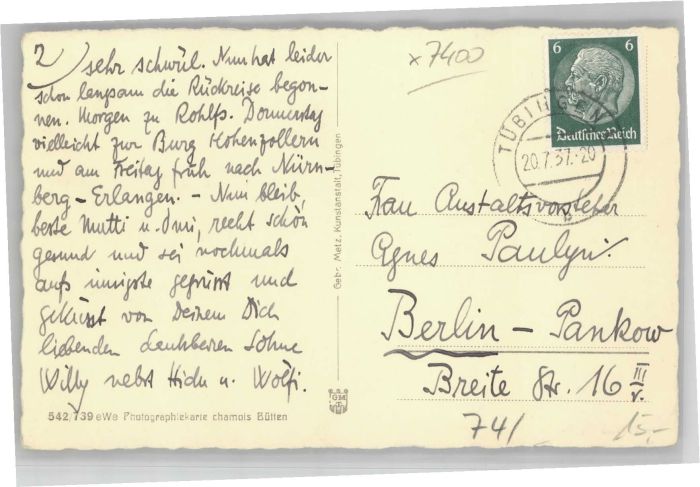 2) sehr schwül. Nun hat leider
schon langsam die Rückreise begon-
nen. Morgen zu Rohlfs. Donnerstag
vielleicht zur Burg Hohenzollern
und am Freitag früh nach Nürn-
berg-Erlangen. – Nun bleib,
beste Mutti u. Omi, recht schön
gesund und sei nochmals
aufs innigste gegrüsst und
geküsst von Deinem Dich
liebenden dankbaren Sohne
Willy nebst u. Wölfi.
542,739 eWe Photographiekarte chamois Bütten
Gebr. Metz, Kunstanstalt, Tübingen
GM
T
x7400
6 6
Deutsches Reich
TÜBINGEN
20.7.37.-20
Frau Anstaltsvorsteher
Agnes Paulyn
Berlin – Pankow
Breite Str. 16 III
r.
74/
15,-